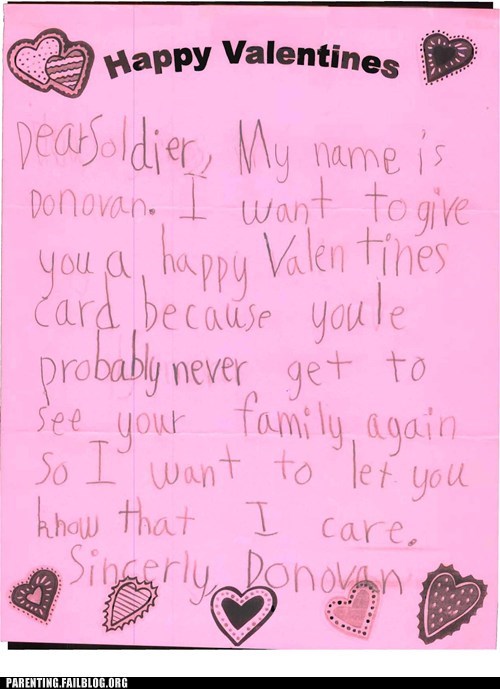 Happy Valentines
Dear Soldier, My name is
Donovan. I want to give
you a happy Valentines
card because youle
probably never get to
see your family again
so I want to let you
know that I care.
Sincerly, Donovan
PARENTING.FAILBLOG.ORG